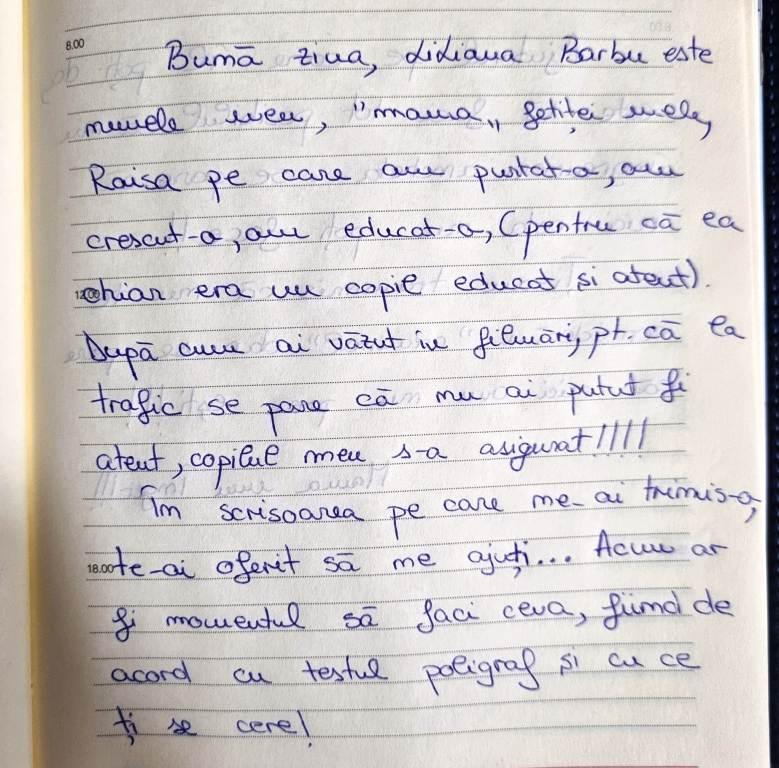 8.00
Bună ziua, Liliana Barbu este
numele meu, "mama„ fetiței mele,
Raisa pe care am purtat-o, am
crescut-o, am educat-o, (pentru că ea
12.00 chiar era un copil educat si atent).
După cum ai văzut în filmări, pt. că la
trafic se pare că nu ai putut fi
atent, copilul meu s-a asigurat!!!!
În scrisoarea pe care me-ai trimis-o,
18.00 te-ai oferit să me ajuți... Acum ar
fi momentul să faci ceva, fiind de
acord cu testul poligraf și cu ce
ți se cere!